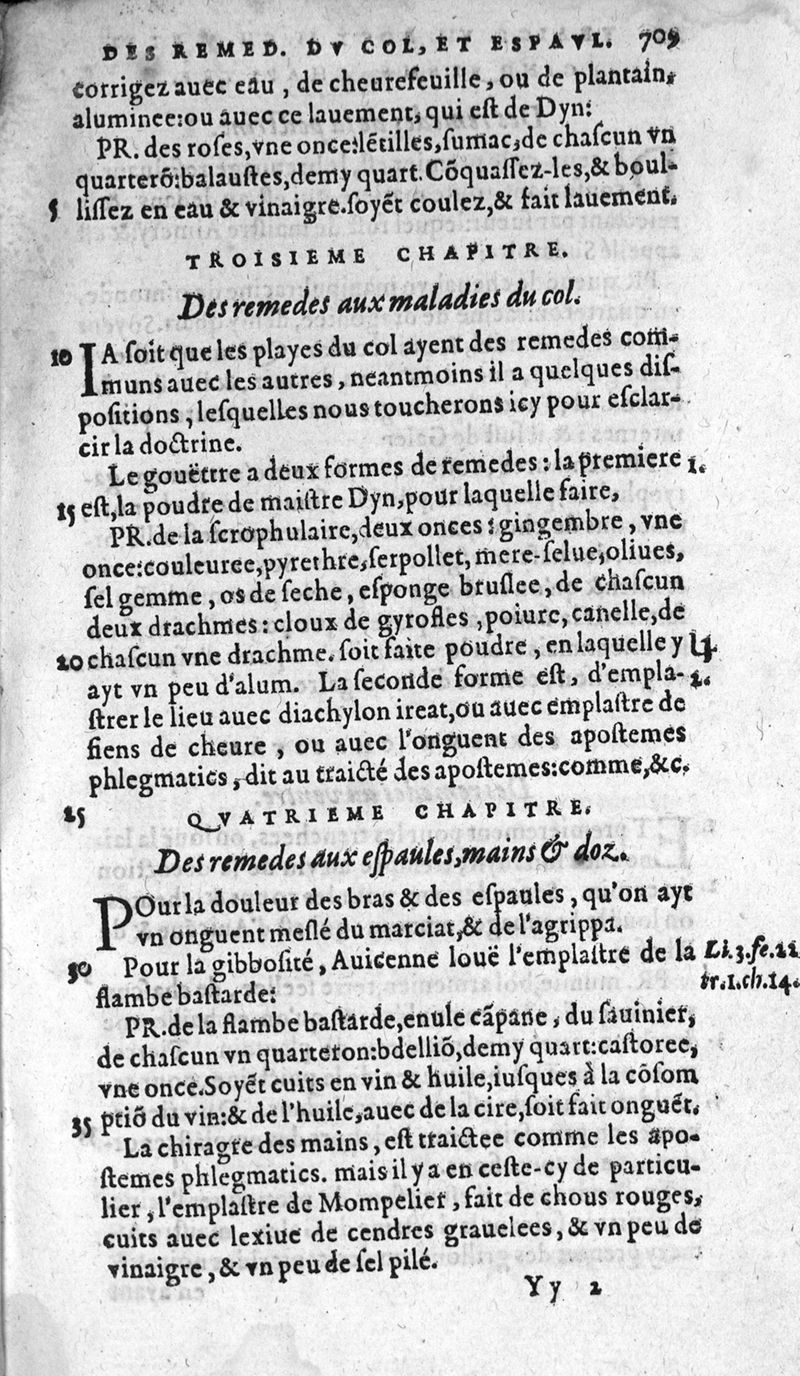 DES REMED. DV COL, ET ESPAVL. 709
corrigez auec eau, de cheurefeuille, ou de plantain,
aluminee: ou auec ce lauement, qui eſt de Dyn:
PR. des roſes, vne once: lẽtilles, ſumac, de chaſcun vn
quarterõ: balauſtes, demy quart. Cõquaſſez-les, & boul-
5 liſſez en eau & vinaigre. ſoyẽt coulez, & fait lauement.
TROISIEME CHAPITRE.
Des remedes aux maladies du col.
10 IA ſoit que les playes du col ayent des remedes com-
muns auec les autres, neantmoins il a quelques diſ-
poſitions, leſquelles nous toucherons icy pour eſclar-
cir la doctrine.
Le gouëttre a deux formes de remedes: la premiere 1.
15 eſt, la poudre de maiſtre Dyn, pour laquelle faire,
PR. de la ſcrophulaire, deux onces: gingembre, vne
once: couleuree, pyrethre, ſerpollet, mere-ſelue, oliues,
ſel gemme, os de ſeche, eſponge bruſlee, de chaſcun
deux drachmes: cloux de gyrofles, poiure, canelle, de
20 chaſcun vne drachme. ſoit faite poudre, en laquelle y
ayt vn peu d'alum. La ſeconde forme eſt, d'empla- 2.
ſtrer le lieu auec diachylon ireat, ou auec emplaſtre de
fiens de cheure, ou auec l'onguent des apoſtemes
phlegmatics, dit au traicté des apoſtemes: comme, &c.
25 QVATRIEME CHAPITRE.
Des remedes aux eſpaules, mains & doz.
POur la douleur des bras & des eſpaules, qu'on ayt
vn onguent meſlé du marciat, & de l'agrippa.
30 Pour la gibboſité, Auicenne louë l'emplaſtre de la Li.3.fe.22
flambe baſtarde: tr.1.ch.14.
PR. de la flambe baſtarde, enule cãpane, du ſauinier,
de chaſcun vn quarteron: bdelliõ, demy quart: caſtoree,
vne once. Soyẽt cuits en vin & huile, iuſques à la cõſom
35 ptiõ du vin: & de l'huile, auec de la cire, ſoit fait onguẽt.
La chiragre des mains, eſt traictee comme les apo-
ſtemes phlegmatics. mais il y a en ceſte-cy de particu-
lier, l'emplaſtre de Mompelier, fait de chous rouges,
cuits auec lexiue de cendres grauelees, & vn peu de
vinaigre, & vn peu de ſel pilé.
Yy 2